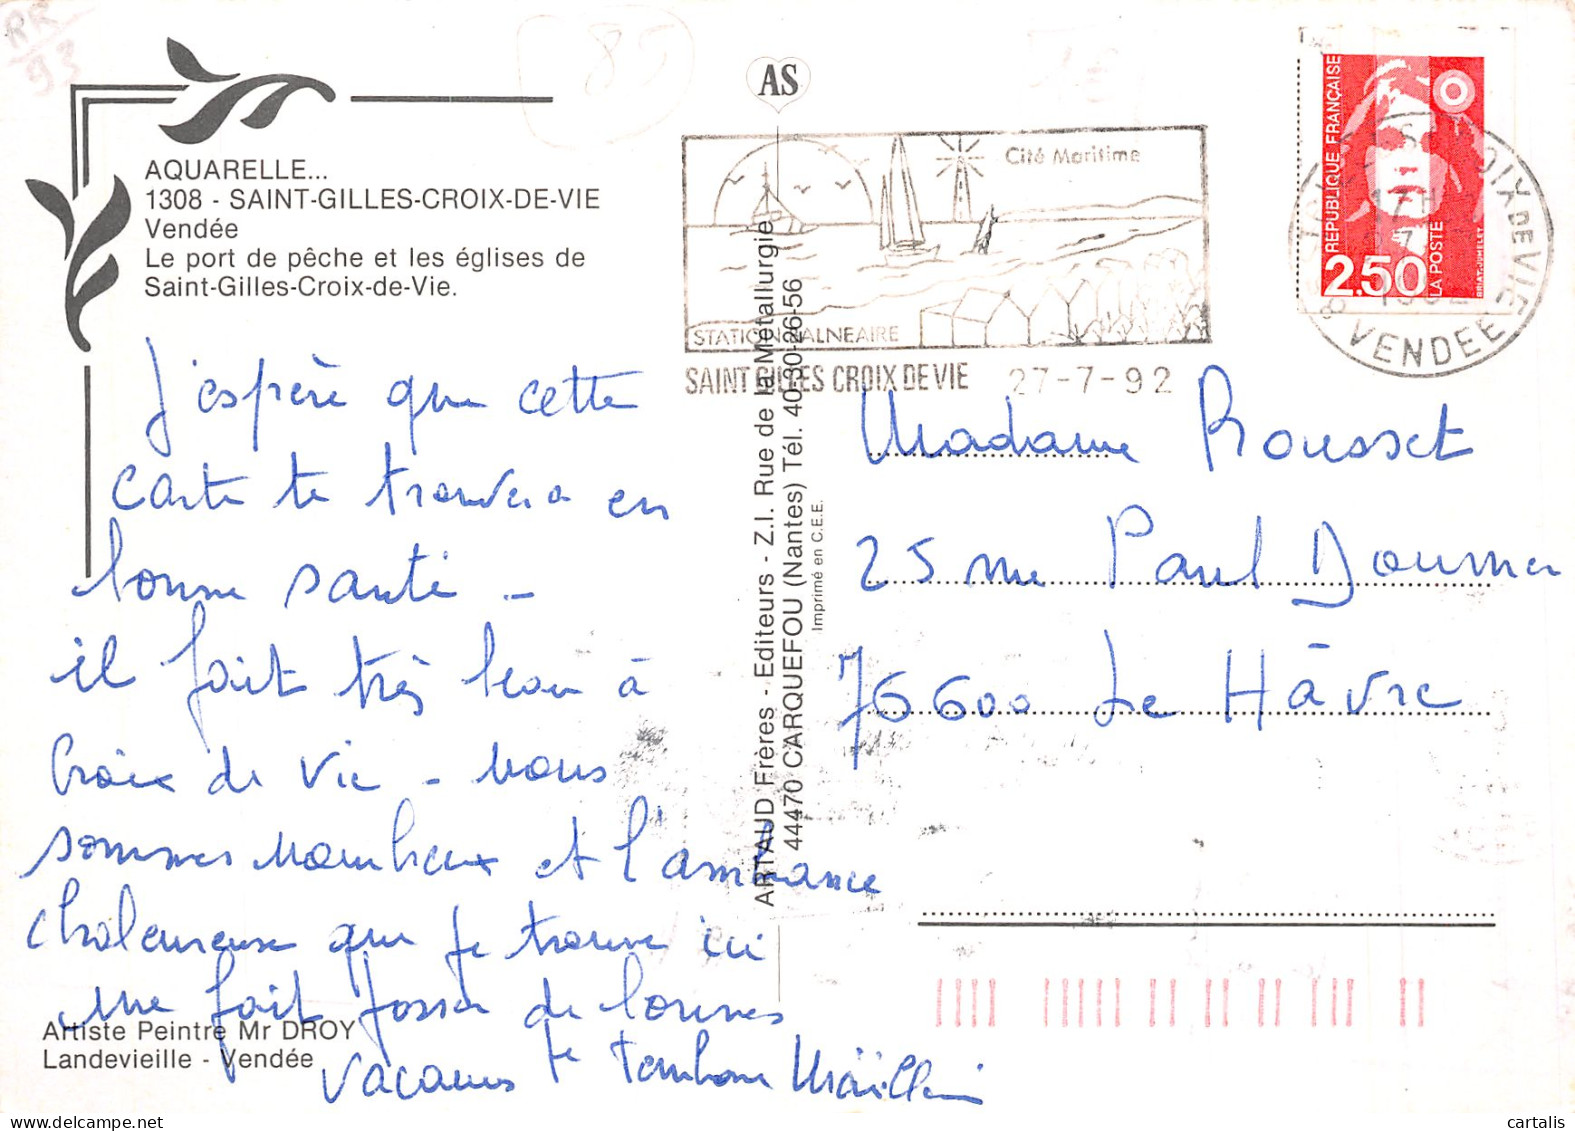 RR
93
85
AQUARELLE...
1308 - SAINT-GILLES-CROIX-DE-VIE
Vendée
Le port de pêche et les églises de
Saint-Gilles-Croix-de-Vie.
J'espère que cette
carte te trouvera en
bonne santé -
il fait très beau à
Croix de Vie - Nous
sommes nombreux et l'ambiance
chaleureuse que je trouve ici
me fait passer de bonnes
vacances Je t'embrasse
Artiste Peintre Mr DROY
Landevieille - Vendée
AS
ARTAUD Frères - Editeurs - Z.I. Rue de la Métallurgie
44470 CARQUEFOU (Nantes) Tél. 40-30-26-56
Imprimé en C.E.E.
Cité Maritime
STATION BALNEAIRE
SAINT GILLES CROIX DE VIE 27-7-92
REPUBLIQUE FRANÇAISE
2,50
LA POSTE
BRIAT-JUMELET
CROIX DE VIE
17H
VENDEE
Madame Rousset
25 rue Paul Doumer
76600 Le Hâvre
cartalis